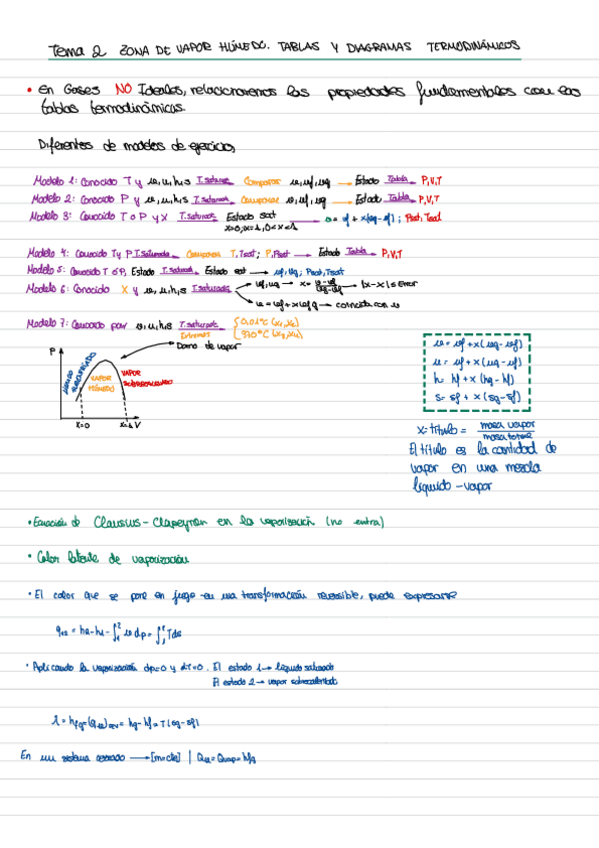 Tema 2 ZONA DE VAPOR HÚMEDO. TABLAS Y DIAGRAMAS TERMODINÁMICOS
• En Gases NO Ideales, relacionaremos las propiedades fundamentales con las
tablas termodinámicas.
Diferentes de modelos de ejercicio,
Modelo 1: Conocido T y v, u, h, s T. saturac Comparar v, vf, vg → Estado Tabla P, V, T
Modelo 2: Conocido P y v, u, h, s T. saturac Comparar v, vf, vg → Estado Tabla P, V, T
Modelo 3: Conocido T o P y x T. saturac Estado sat → v = vf + x(vg-vf); Psat, Tsat
x=0; x=1, 0<x<1
Modelo 4: Conocido T y P T. Saturada Comparar T, Tsat; P, Psat → Estado Tabla P, V, T
Modelo 5: Conocido T o P, Estado T. saturac Estado sat → vf, vg; Psat, Tsat
Modelo 6: Conocido x y v, u, h, s T. Saturada vf, vg → x = v-vf / vg-vf → |x-x| ≤ Error
v = vf + x vfg → coincida con v
Modelo 7: Conocido par v, u, h, s T. saturac Extremos { 0,01°C (x1, x2)
Domo de vapor
P
LÍQUIDO SUBENFRIADO
VAPOR HÚMEDO
VAPOR SOBRECALENTADO
x=0 x=1 V
v = vf + x(vg-vf)
u = uf + x(ug-uf)
h = hf + x(hg-hf)
s = sf + x(sg-sf)
x = título = masa vapor / masa total
El título es la cantidad de
vapor en una mezcla
líquido - vapor
• Ecuación de Clausius-Clapeyron en la vaporización (no entra)
• Calor latente de vaporización
• El calor que se pone en juego en una transformación reversible, puede expresarse
q12 = h2-h1 - ∫₁² v dp = ∫₁² Tds
• Aplicando la vaporización dp=0 y dT=0. El estado 1 → líquido saturado
El estado 2 → vapor sobrecalentado
λ = hfg = (q12)rev = hg - hf = T(sg-sf)
En un sistema cerrado → [m=cte] | Q12 = Qvap = hfg